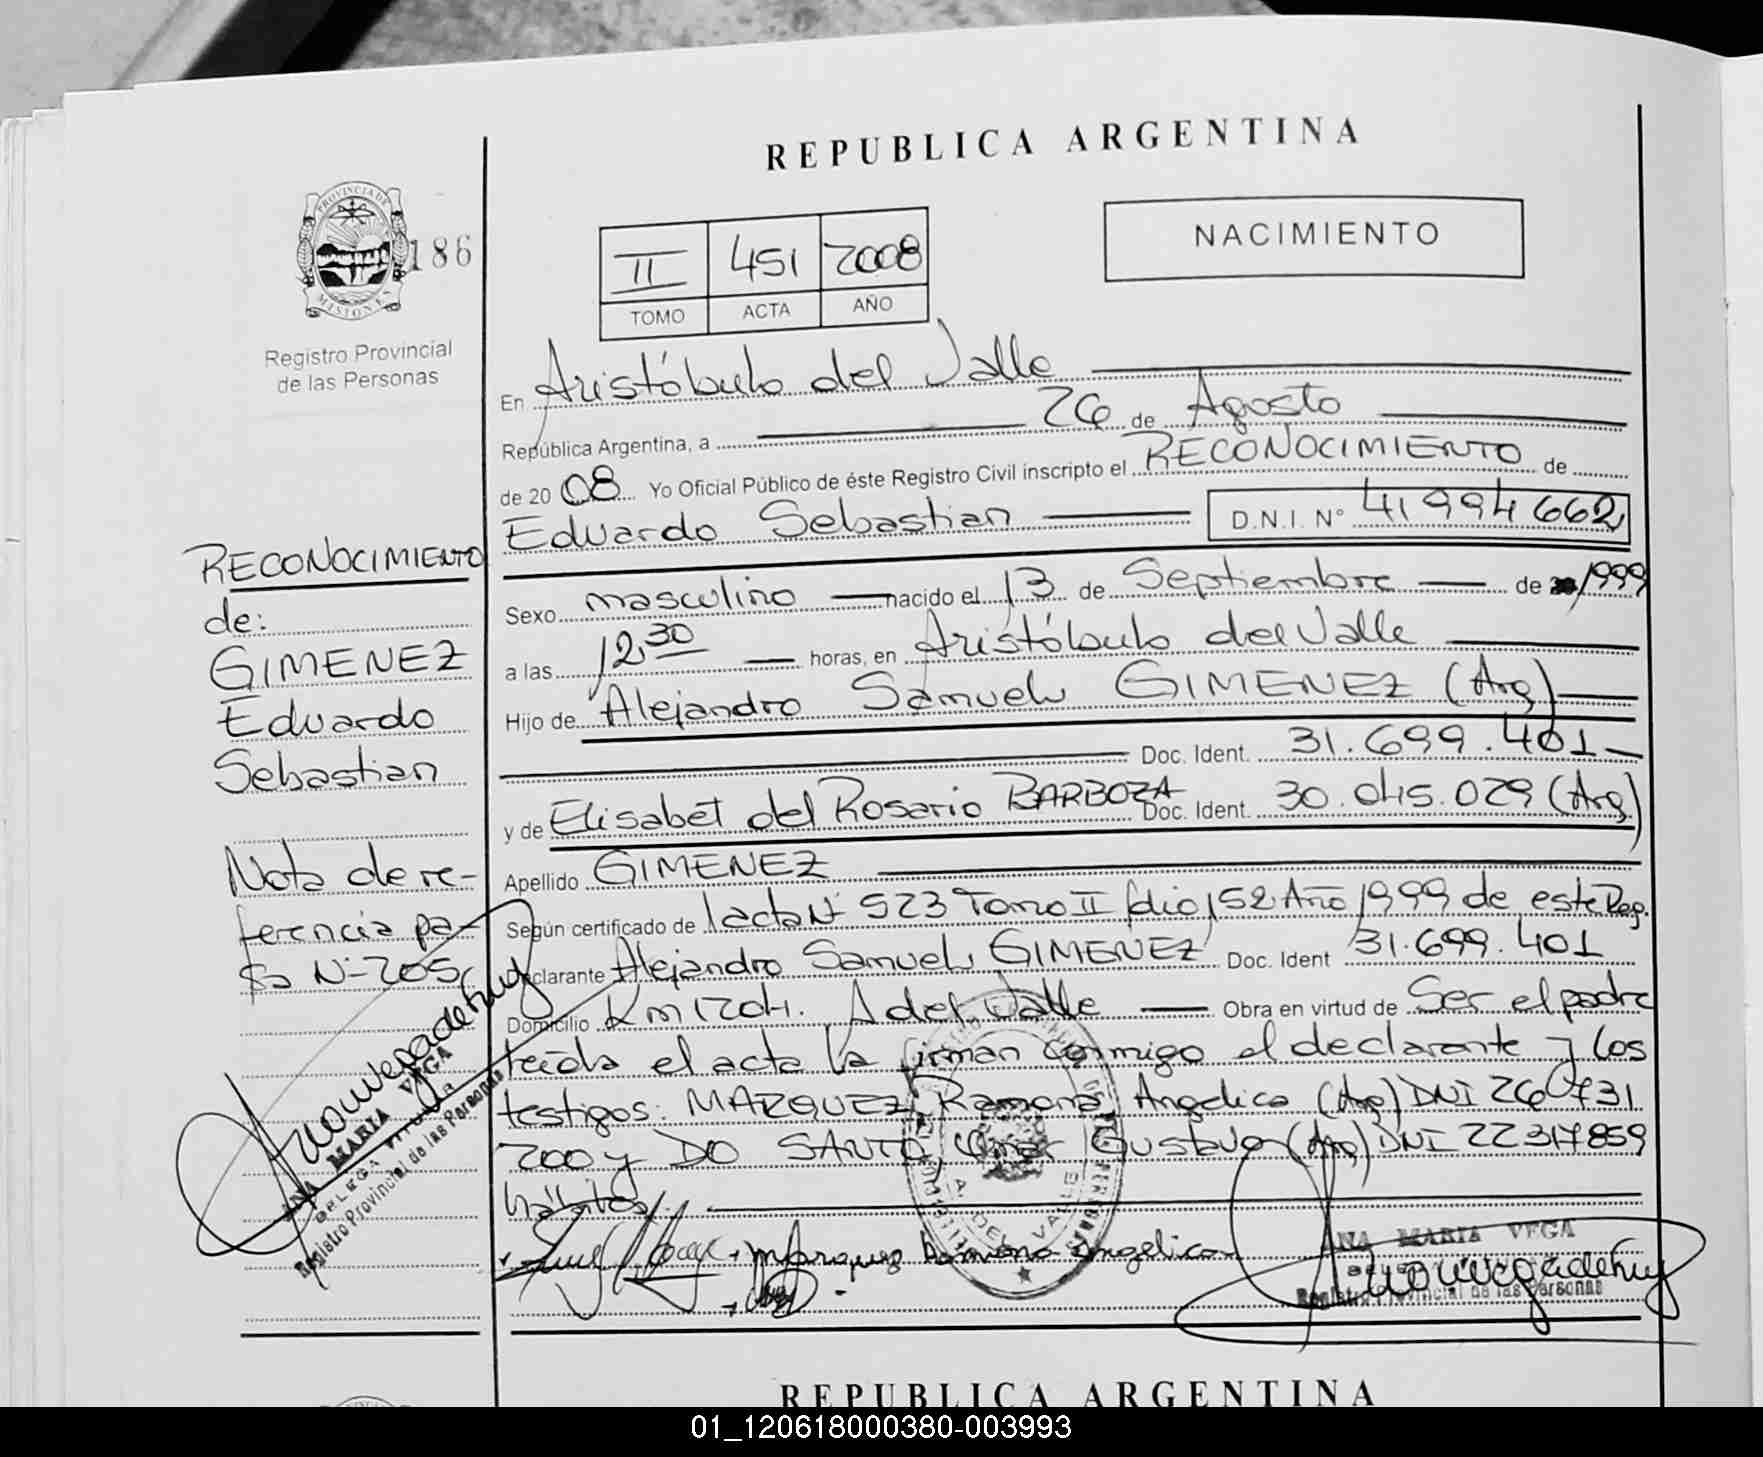 REPUBLICA ARGENTINA
PROVINCIA DE
MISIONES
186
NACIMIENTO
II 451 2008
TOMO ACTA AÑO
Registro Provincial
de las Personas
En Aristóbulo del Valle
República Argentina, a 26 de Agosto
de 2008 Yo Oficial Público de éste Registro Civil inscripto el RECONOCIMIENTO de
Eduardo Sebastian D.N.I. N° 41994662
Sexo masculino nacido el 13 de Septiembre de 1999
a las 12,30 horas, en Aristóbulo del Valle
Hijo de Alejandro Samuel GIMENEZ (Arg)
Doc. Ident. 31.699.401
y de Elisabet del Rosario BARBOZA Doc. Ident. 30.045.029 (Arg)
Apellido GIMENEZ
Según certificado de acta N° 523 Tomo II folio 152 Año 1999 de este Reg.
Declarante Alejandro Samuel GIMENEZ Doc. Ident 31.699.401
Domicilio Km 1204. A del Valle Obra en virtud de Ser el padre
leída el acta la firman conmigo el declarante y los
testigos: MARQUEZ, Ramona Angelica (Arg) DNI 26.731
200 y DO SANTO, Omar Gustavo (Arg) DNI 22317859
hábiles.
Marquez Ramona Angelica
ANA MARIA VEGA
Registro Provincial de las Personas
RECONOCIMIENTO
de:
GIMENEZ
Eduardo
Sebastian
Nota de re-
ferencia pa-
sa N° 205
ANA MARIA VEGA
Registro Provincial de las Personas
REPUBLICA ARGENTINA
01_120618000380-003993